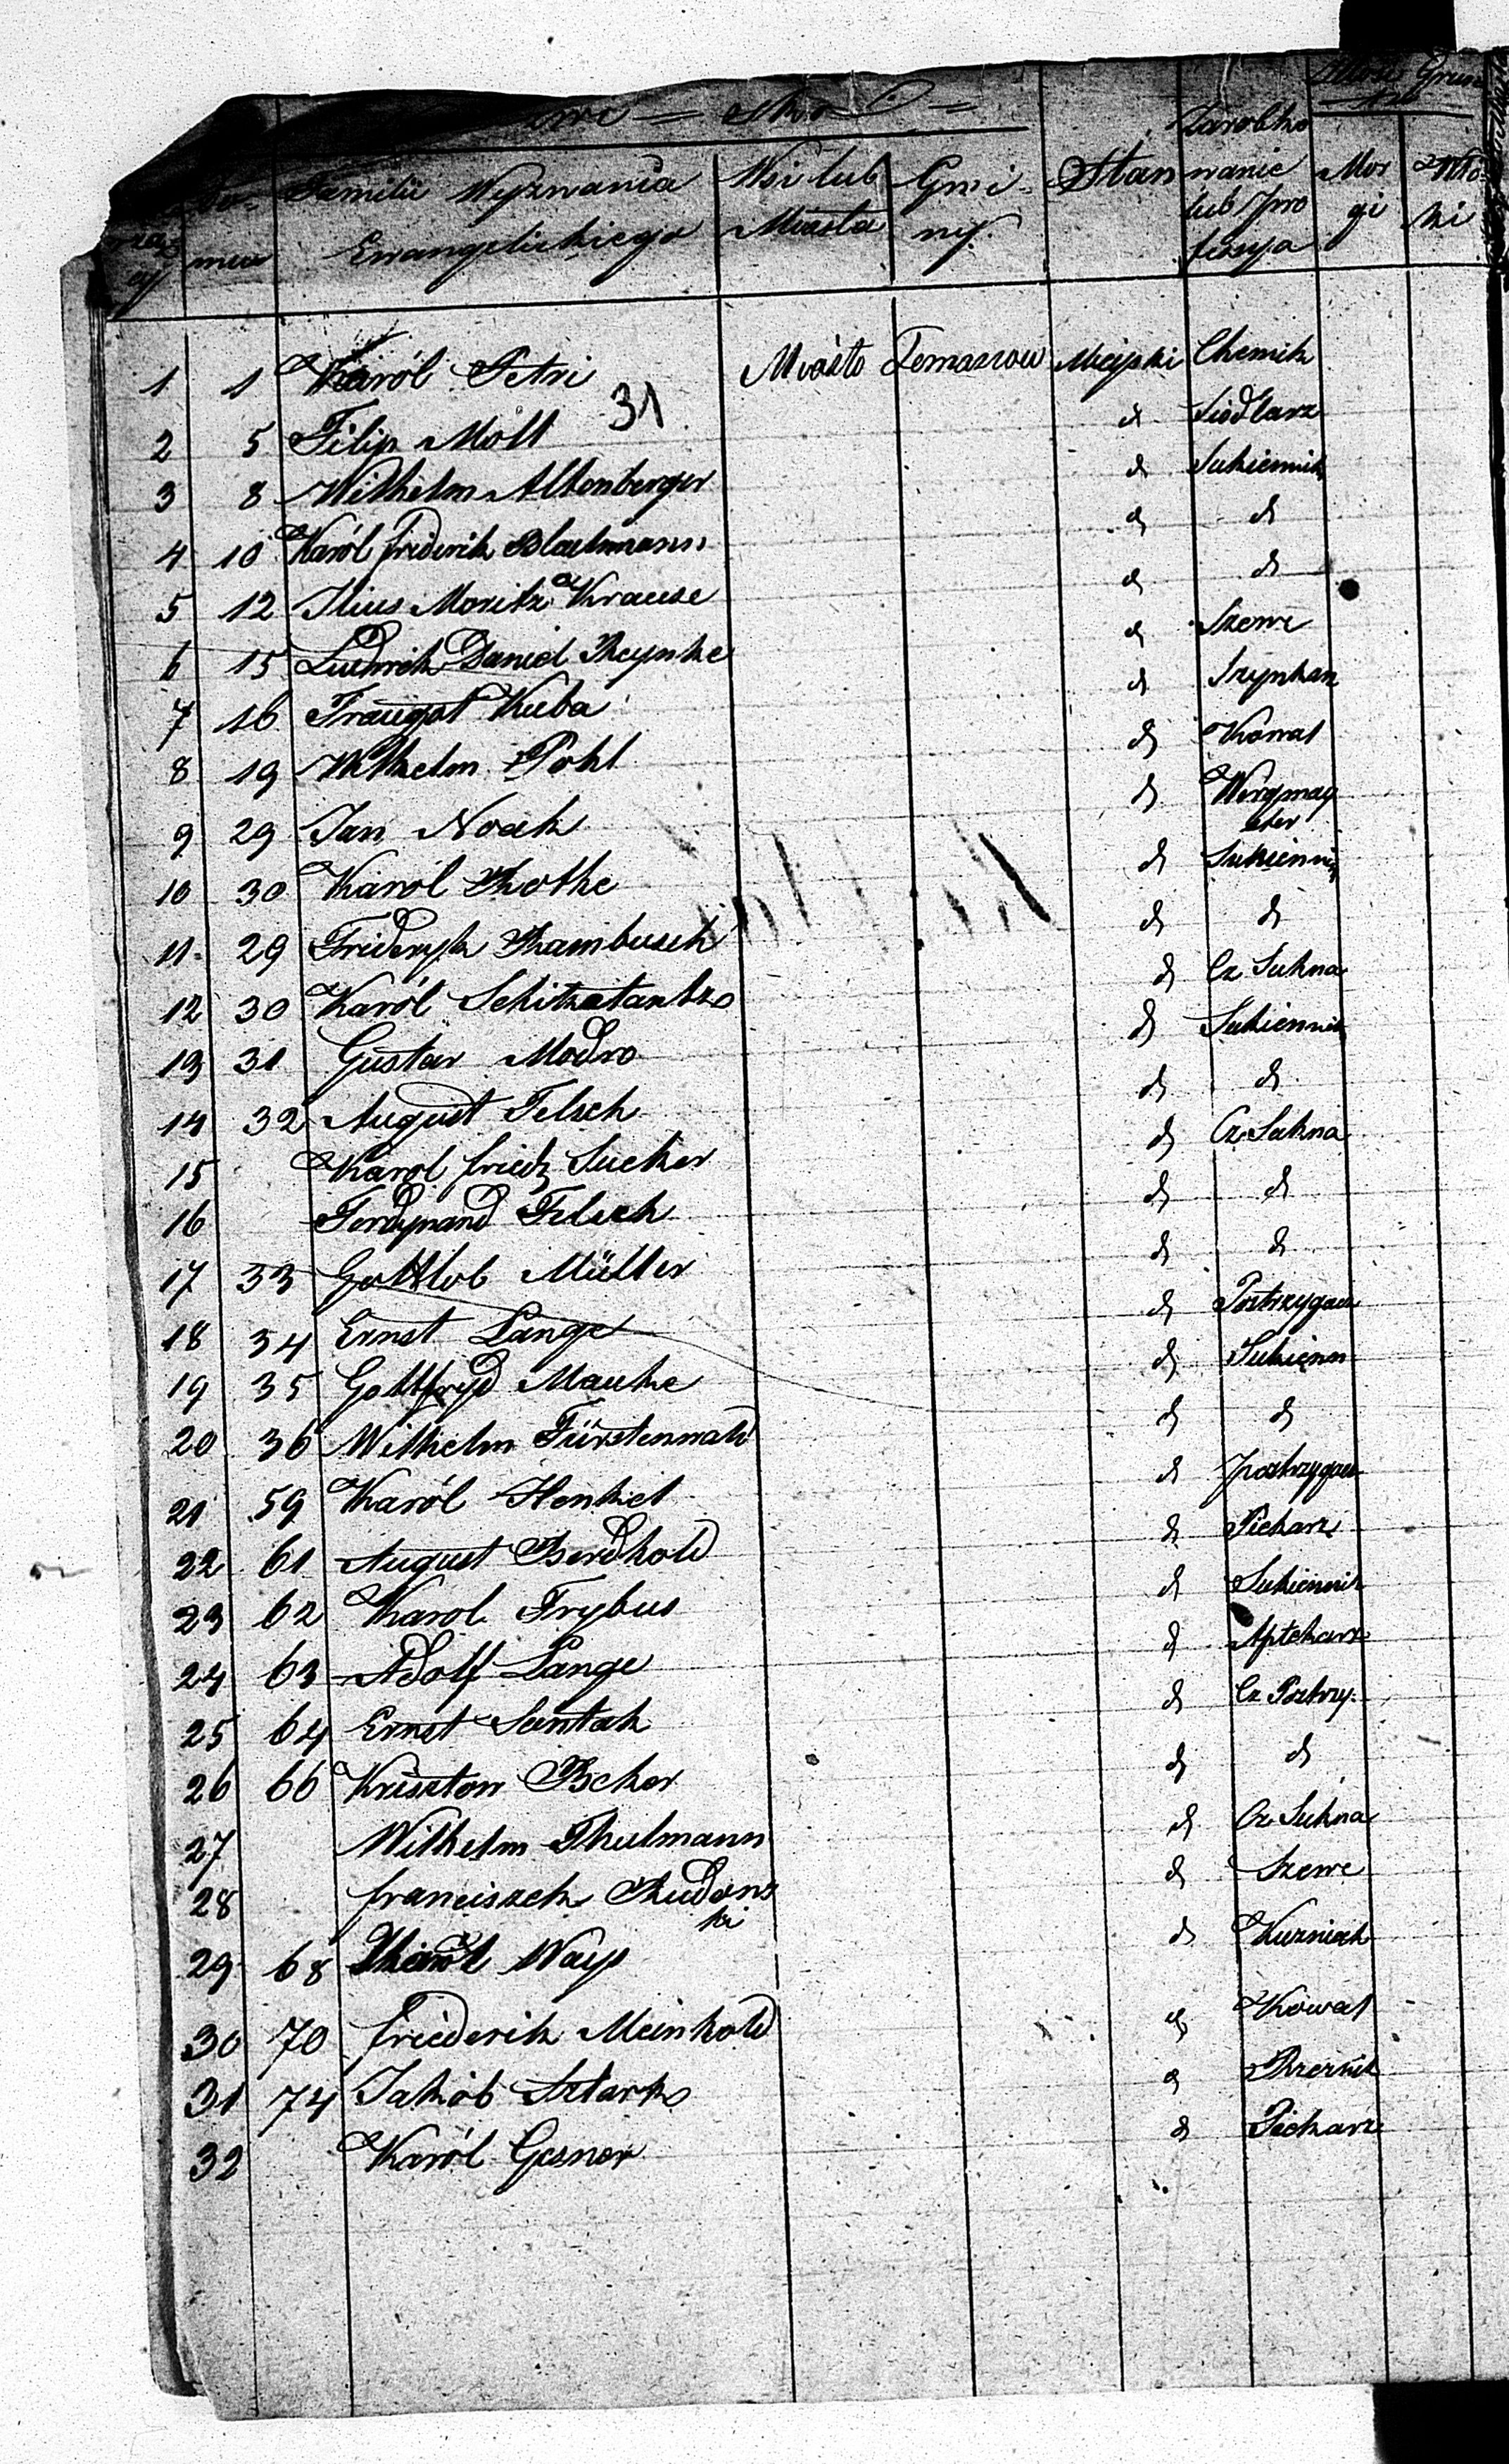 Familii Wyznania Wsi lub Gmi- Stan Zarobko
wanie Mor
Ewangelickiego Miasta ny. lub pro gi ki
mu fessya
1 1 Karól Petri Miasto Tomaszow Miejski Chemik
31
2 5 Filip Moll d Siodlarz
3 8 Wilhelm Altenberger d Sukiennik
4 10 Karól Friderik d d
5 12 Moritz Krause d d
6 15 Ludwik Daniel Reynke d Szewc
7 16 Traugot Kuba d Szynkarz
8 19 Wilhelm Pohl d Kowal
9 29 Jan Noack d Wergmag
ster
10 30 Karól Rothe d Sukiennik
11 29 Frideryk Rambusch d d
12 30 Karól d Cz Sukna
13 31 Gustav Modro d Sukiennik
14 32 August Felsch d d
15 Karol Friedr Sucker d Cz. Sukna
16 Ferdynand Felsch d d
17 33 Gottlob Müller d d
18 34 Ernst Lange d Postrzygacz
19 35 Gottfryd Mauke d Sukienn
20 36 Wilhelm Fürstenwald d d
21 59 Karól Henkel d postrzygacz
22 61 August Berdhold d Piekarz
23 62 Karol Trybus d Sukiennik
24 63 Adolf Lange d Aptekarz
25 64 Ernst Santak d Cz Postrzy.
26 66 Krisztow Beker d d
27 Wilhelm Thulmann d Cz Sukna
28 Franciszek Rudons d Szewc
ki
29 68 Karol d
30 70 Friederik Meinhold d Kowal
31 74 Jakób Sztark d Rzeznik
32 Karól Gesner d Piekarz